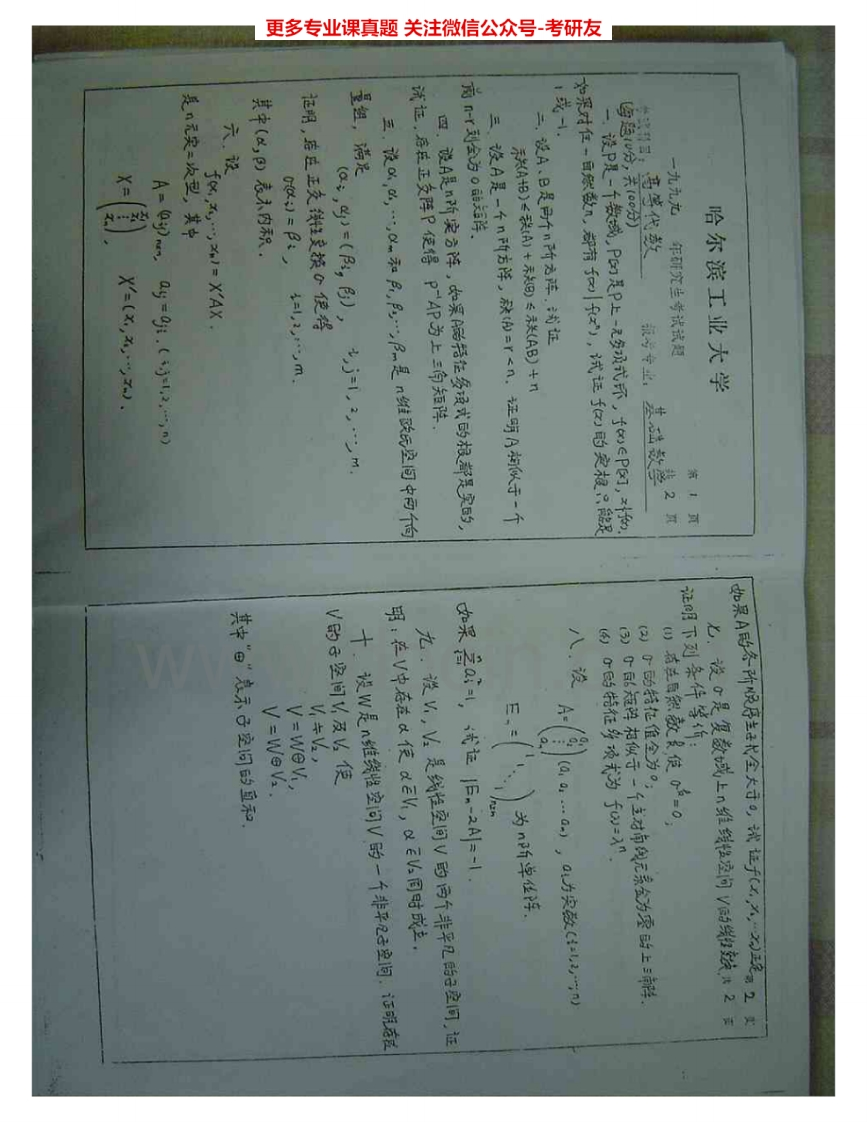 更多专业课真题 关注微信公众号-考研友
哈尔滨工业大学
第 1 页
共 2 页
一九九九 年研究生考试试题
考试科目：高等代数 报考专业：基础数学
(每题10分,共100分)
一. 设P是一个数域, P[x]是P上一元多项式环, f(x)∈P[x], x∤f(x).
如果对任一自然数n, 都有 f(x)|f(xⁿ), 试证 f(x) 的实根只能是
1或-1.
二. 设A、B是两个n阶方阵. 试证
秩(A+B)≤秩(A)+秩(B)≤秩(AB)+n
三. 设A是一个n阶方阵, 秩(A)=r<n. 证明A相似于一个
后n-r列全为0的矩阵.
四. 设A是n阶实方阵, 如果A的特征多项式的根都是实的,
试证. 存在正交阵P使得 P⁻¹AP为上三角矩阵.
五. 设α₁,α₂,…,αm和β₁,β₂,…,βm是n维欧氏空间中两个向
量组, 满足
(αi, αj)=(βi, βj), i,j=1,2,…,m.
证明, 存在正交线性变换σ使得
σ(αi)=βi, i=1,2,…,m.
其中(α,β)表示内积.
六. 设
f(x₁,x₂,…,xn)=X'AX.
是n元实二次型, 其中
A=(aij)n×n, aij=aji. (i,j=1,2,…,n)
X=(x₁ x₂ ⋮ xn), X'=(x₁,x₂,…,xn).
第 2 页
共 2 页
如果A的各阶顺序主子式全大于0, 试证f(x₁,x₂,…xn)正定
七. 设σ是复数域上n维线性空间V的线性变换
证明下列条件等价:
(1) 存在自然数k使σᵏ=0;
(2) σ的特征值全为0;
(3) σ的矩阵相似于一个主对角线元素全为零的上三角阵.
(4) σ的特征多项式为 f(λ)=λⁿ.
八. 设
A=(a₁ a₂ ⋮ an)(a₁ a₂ … an), ai为实数(i=1,2,…,n)
En=(1 1 ⋱ 1)n×n 为n阶单位阵.
如果 Σⁿᵢ₌₁ai²=1, 试证 |En-2A|=-1.
九. 设V₁, V₂是线性空间V的两个非平凡的子空间, 证
明: 在V中存在α使 α∉V₁, α∉V₂同时成立.
十. 设W是n维线性空间V的一个非平凡子空间. 证明存在
V的子空间V₁及V₂使
V₁≠V₂,
V=W⊕V₁,
V=W⊕V₂.
其中"⊕"表示子空间的直和.